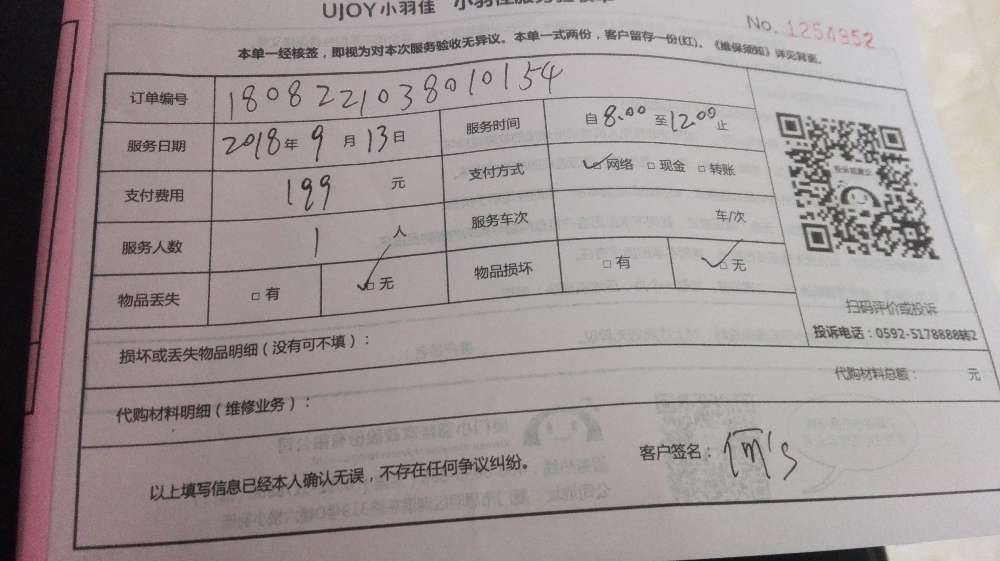 UJOY小羽佳 小羽佳服务验收单
No. 1254952
本单一经核签，即视为对本次服务验收无异议。本单一式两份，客户留存一份(红)。《维保须知》详见背面。
订单编号 1808221038010154
服务日期 2018年9月13日 服务时间 自8:00至12:00止
支付费用 199元 支付方式 ☑网络 □现金 □转账
服务人数 1人 服务车次 车/次
物品丢失 □有 ☑无 物品损坏 □有 ☑无
扫码评价或投诉
投诉电话：0592-5178888转2
损坏或丢失物品明细（没有可不填）：
代购材料明细（维修业务）： 代购材料总额： 元
以上填写信息已经本人确认无误，不存在任何争议纠纷。 客户签名：